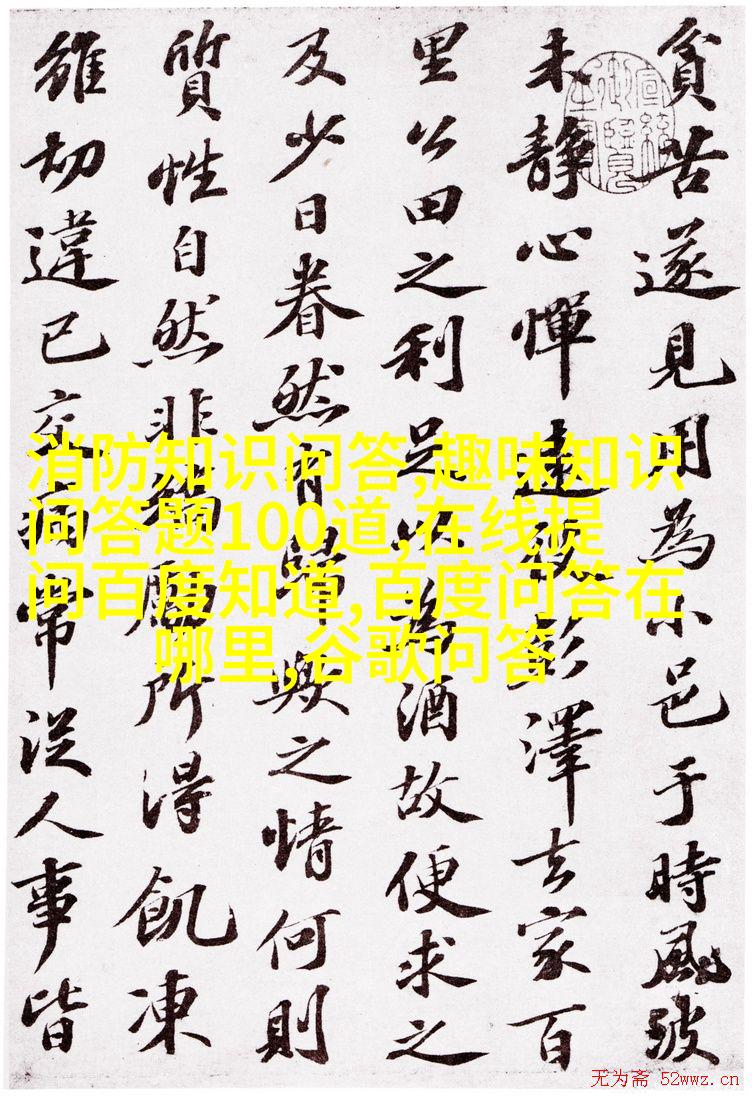 貧苦遂見用為小邑于時風波
未靜心憚遠役彭澤去家百
里公田之利足以為酒故便求之
及少日眷然有歸歟之情何則
質性自然非矯厲所得飢凍
雖切違已交病常從人事皆
消防知识问答,趣味知识
问答题100道,在线提
问百度知道,百度问答在
哪里,谷歌问答
无为斋 52wwz.cn